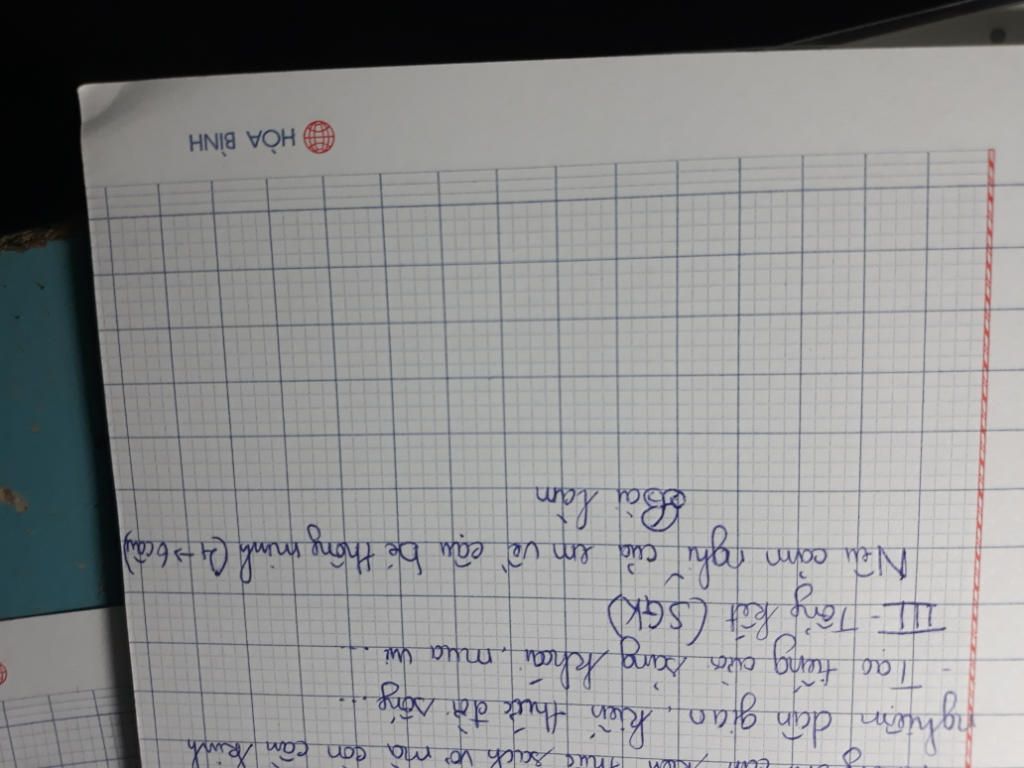 kiến thức sách vở mà còn cần kinh
nghiệm dân gian, kiến thức đời sống...
- Tạo tiếng cười sảng khoái, mua vui...
III - Tổng kết (SGK)
Nêu cảm nghĩ của em về cậu bé thông minh (4 → 6 câu)
Bài làm
HÒA BÌNH